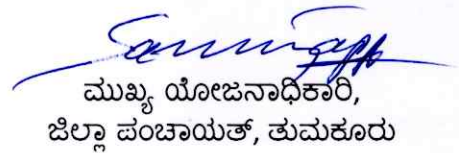 ಮುಖ್ಯ ಯೋಜನಾಧಿಕಾರಿ,
ಜಿಲ್ಲಾ ಪಂಚಾಯತ್, ತುಮಕೂರು